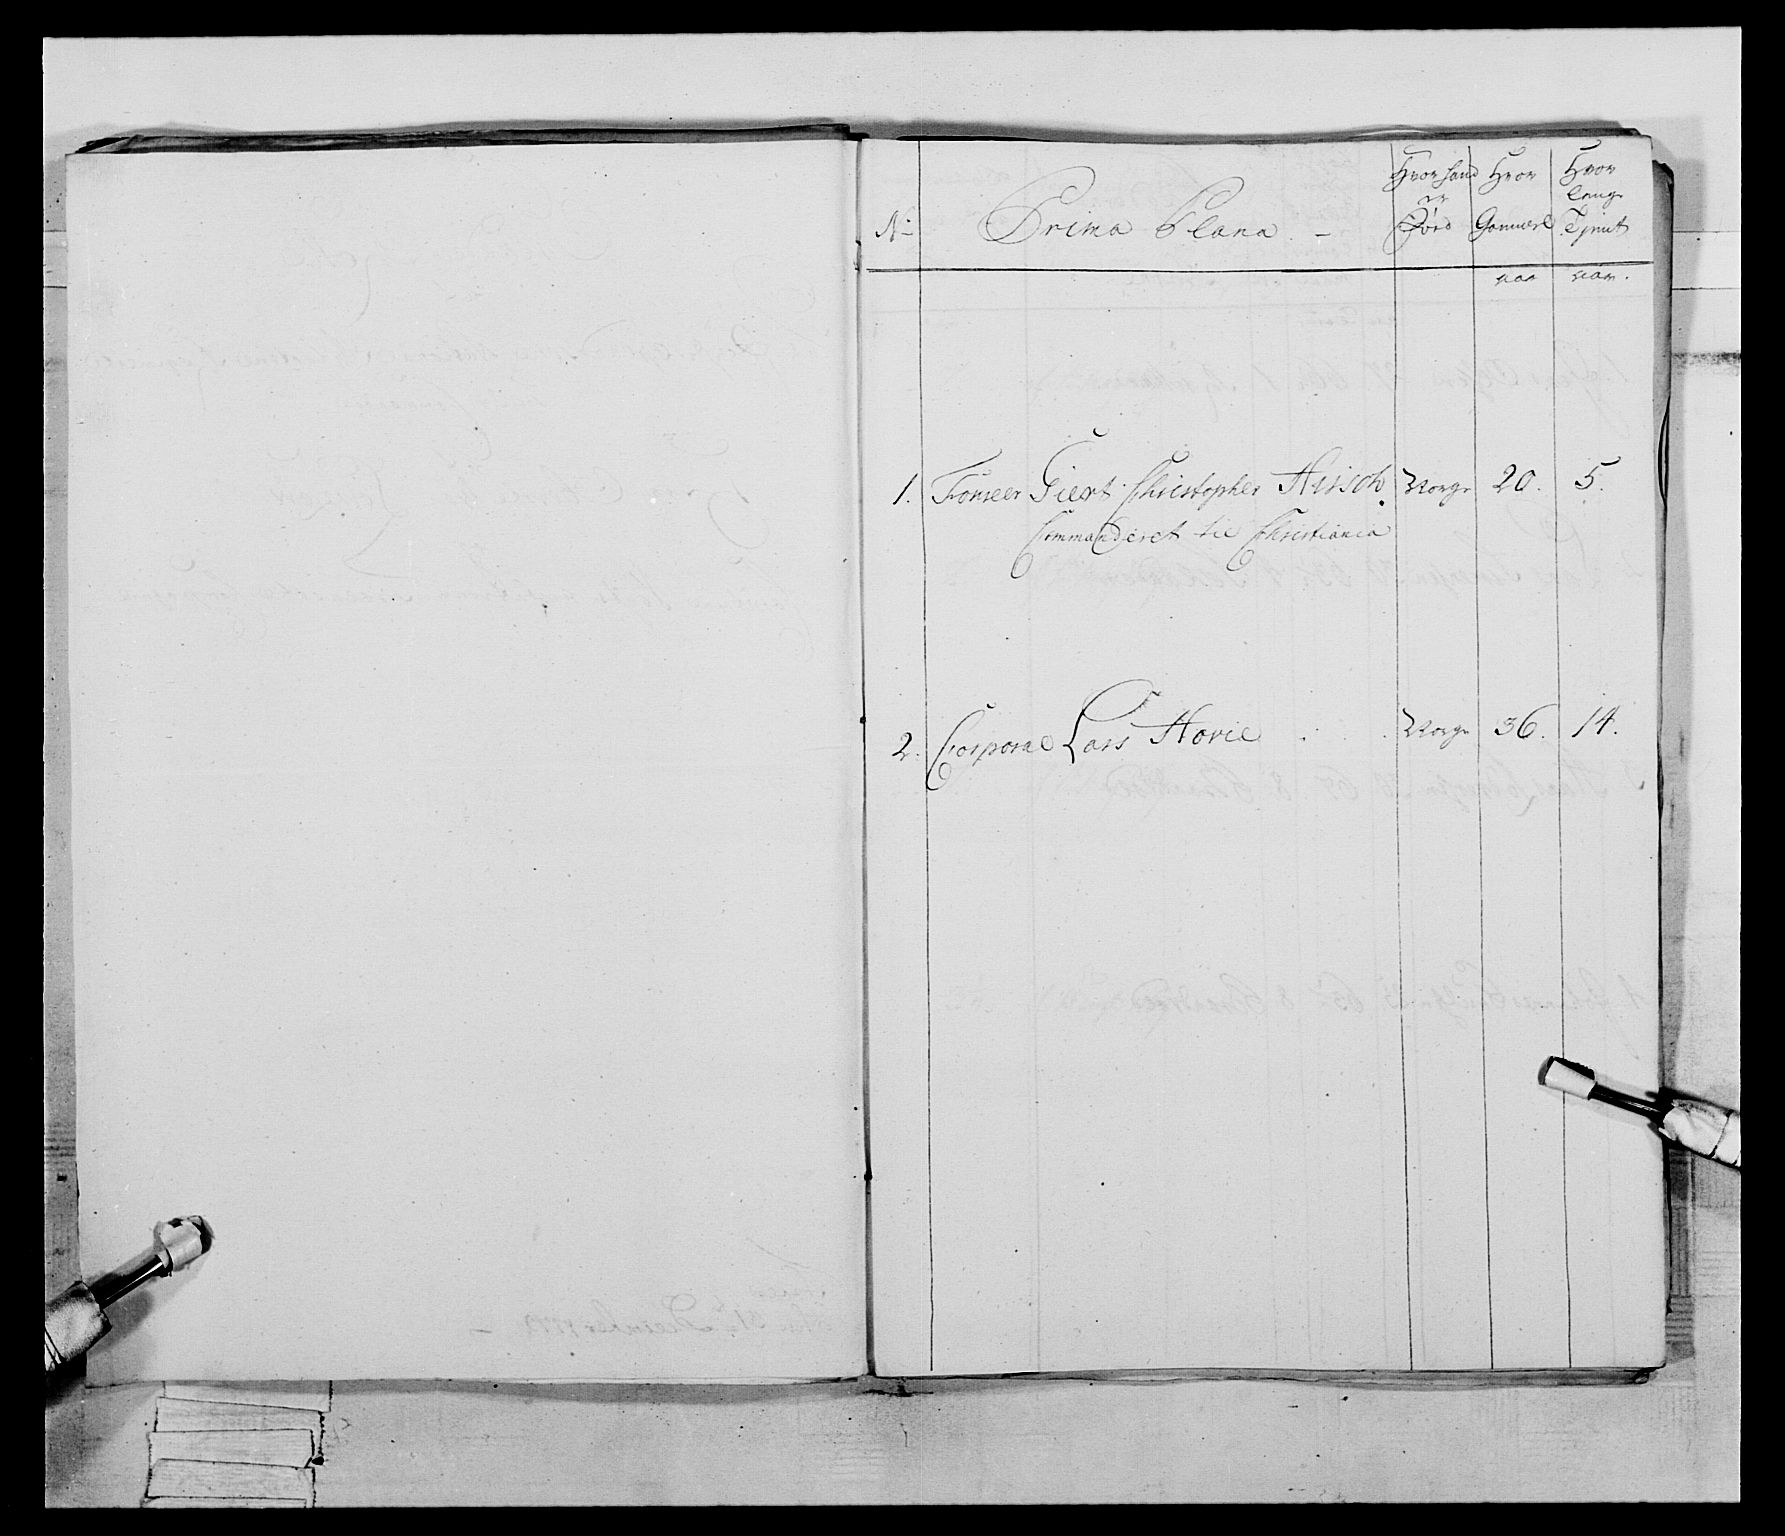 No Prima Plana - Hvor hand er Førd Hvor Gammel Hvor lenge Tient
aar aar.
1. Giert Christopher Hirsch Norge 20. 5.
Commanderet til Christiania
2. Corporal Lars Hovie Norge 36. 14.